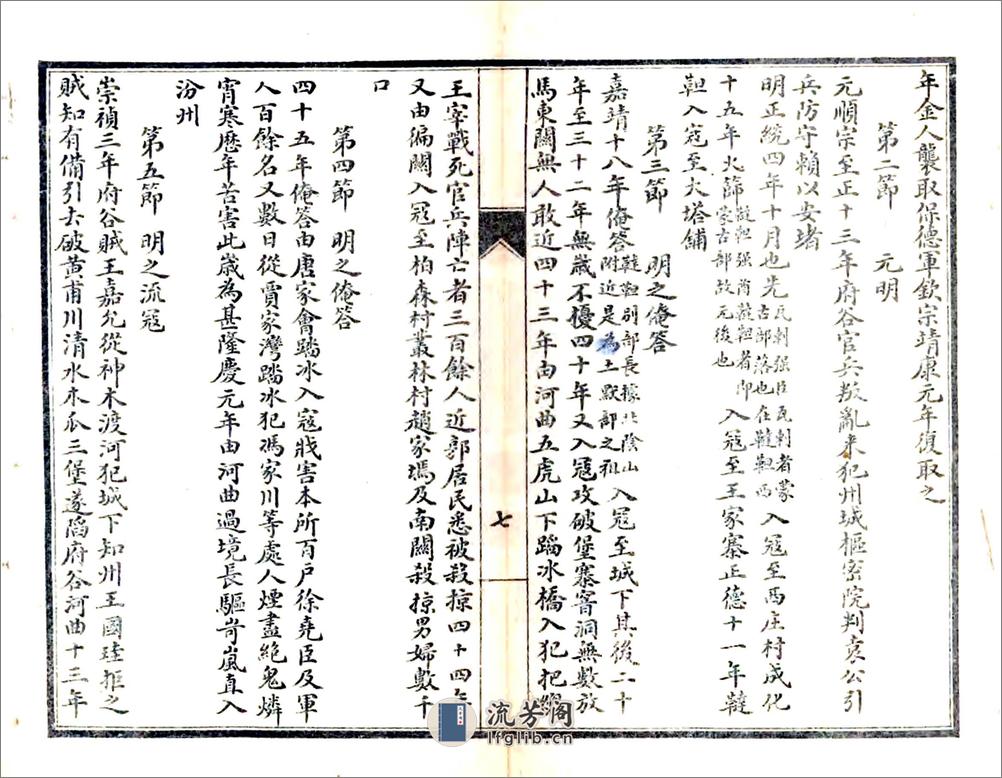 年金人襲取保德軍欽宗靖康元年復取之
第二節　元明
元順宗至正十三年府谷官兵叛亂來犯州城樞密院判袁公引
兵防守賴以安堵
明正統四年十月也先瓦剌强臣瓦剌者蒙古部落也在韃靼西入寇至西庄村成化
十五年火篩韃靼强酋韃靼者即蒙古部故元後也入寇至王家寨正德十一年韃
靼入寇至大塔鋪
第三節　明之俺答
嘉靖十八年俺答韃靼别部長據北陰山附近是為土默部之祖入寇至城下其後二十
年至三十二年無歲不擾四十年又入寇攻破堡寨窨洞無數放
馬東關無人敢近四十三年由河曲五虎山下蹈冰橋入犯把總
王宰戰死官兵陣亡者三百餘人近郭居民悉被殺掠四十四年
又由偏關入寇至柏森村叢林村趙家墕及南關殺掠男婦數千
口
第四節　明之俺答
四十五年俺答由唐家會踏冰入寇戕害本所百戶徐堯臣及軍
人百餘名又數日從賈家灣踏冰犯馮家川等處人煙盡絶鬼燐
宵寒歷年苦害此歲為甚隆慶元年由河曲過境長驅岢嵐直入
汾州
第五節　明之流寇
崇禎三年府谷賊王嘉允從神木渡河犯城下知州王國珪拒之
賊知有備引去破黃甫川清水木瓜三堡遂䧟府谷河曲十三年
七
流芳閣
lfglib.cn